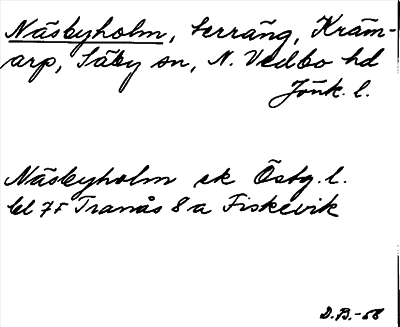 Näsbyholm, terräng, Kräm-
arp, Säby sn, N. Vedbo hd
Jönk. l.
Näsbyholm ek Östg. l.
bl 75 Tranås 8 a Fiskevik
D.B.-68